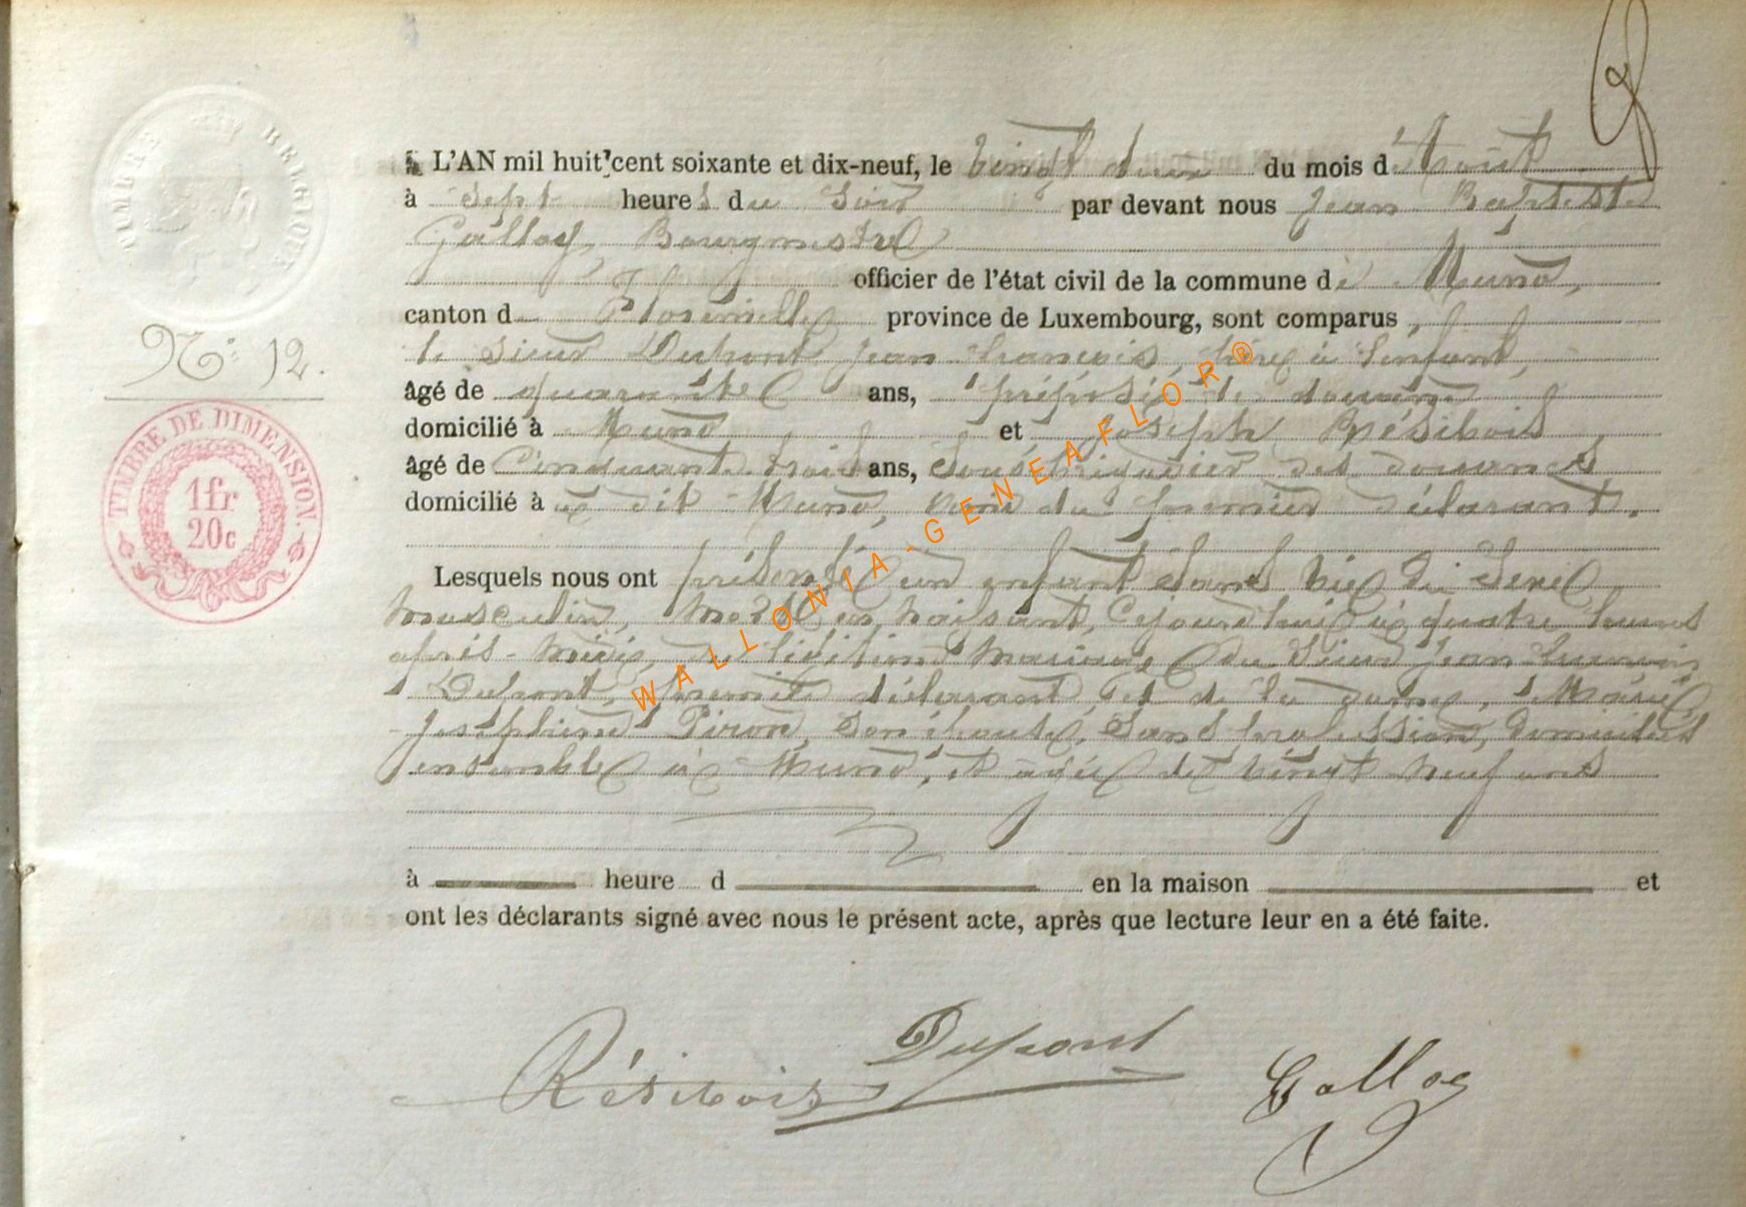 TIMBRE BELGIQUE
L'AN mil huit cent soixante et dix-neuf, le vingt deux du mois d'Août
à sept heures du soir par devant nous Jean Baptiste
Galloy, Bourgmestre
officier de l'état civil de la commune de Muno,
canton d Florenville province de Luxembourg, sont comparus,
le sieur Dupont Jean François, père à l'enfant,
N° 12.
âgé de quarante ans, préposé de douane
domicilié à Muno et Joseph Résibois
âgé de Cinquante trois ans, Sous brigadier des douanes
domicilié à dit Muno, ami du premier déclarant.
TIMBRE DE DIMENSION.
1fr
20c
Lesquels nous ont présenté un enfant sans vie du sexe
masculin, mort en naissant, cejourd'hui à quatre heures
après-midi, du légitime mariage du sieur Jean François
Dupont, premier déclarant, et de la dame Marie
Joséphine Piron, son épouse, sans profession, domiciliés
ensemble à Muno, et âgée de vingt neuf ans
à heure d en la maison et
ont les déclarants signé avec nous le présent acte, après que lecture leur en a été faite.
Résibois Dupont Galloy
WALLONIA-GENEAFLOR®